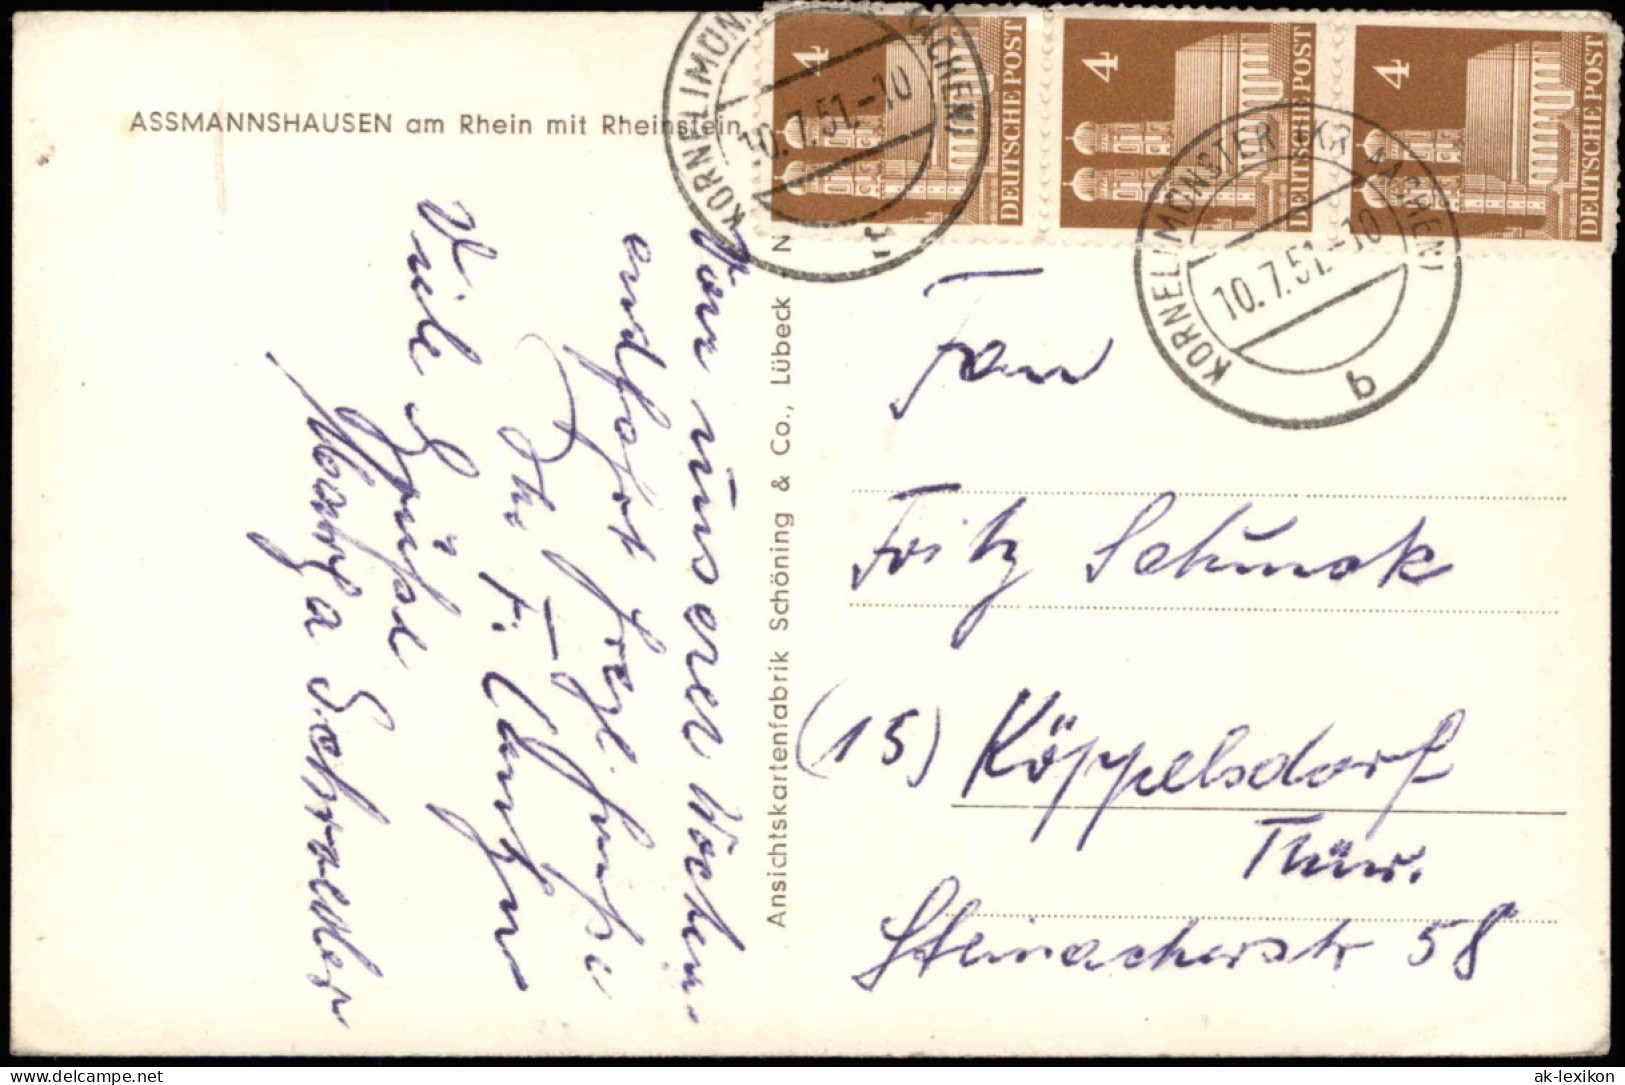 ASSMANNSHAUSEN am Rhein mit Rheinstein
4
DEUTSCHE POST
4
DEUTSCHE POST
4
DEUTSCHE POST
KORNELIMÜNSTER (KR AACHEN)
10.7.51.-10
b
KORNELIMÜN ACHEN)
10.7.51.-10
Von unserer Wochen
endfahrt herzl. Grüße
Ihr
Viele Grüße
Schraeder
Ansichtskartenfabrik Schöning & Co., Lübeck N
Frau
Fritz Schunk
(15) Köppelsdorf
Thür.
Steinacherstr 58
ak-lexikon